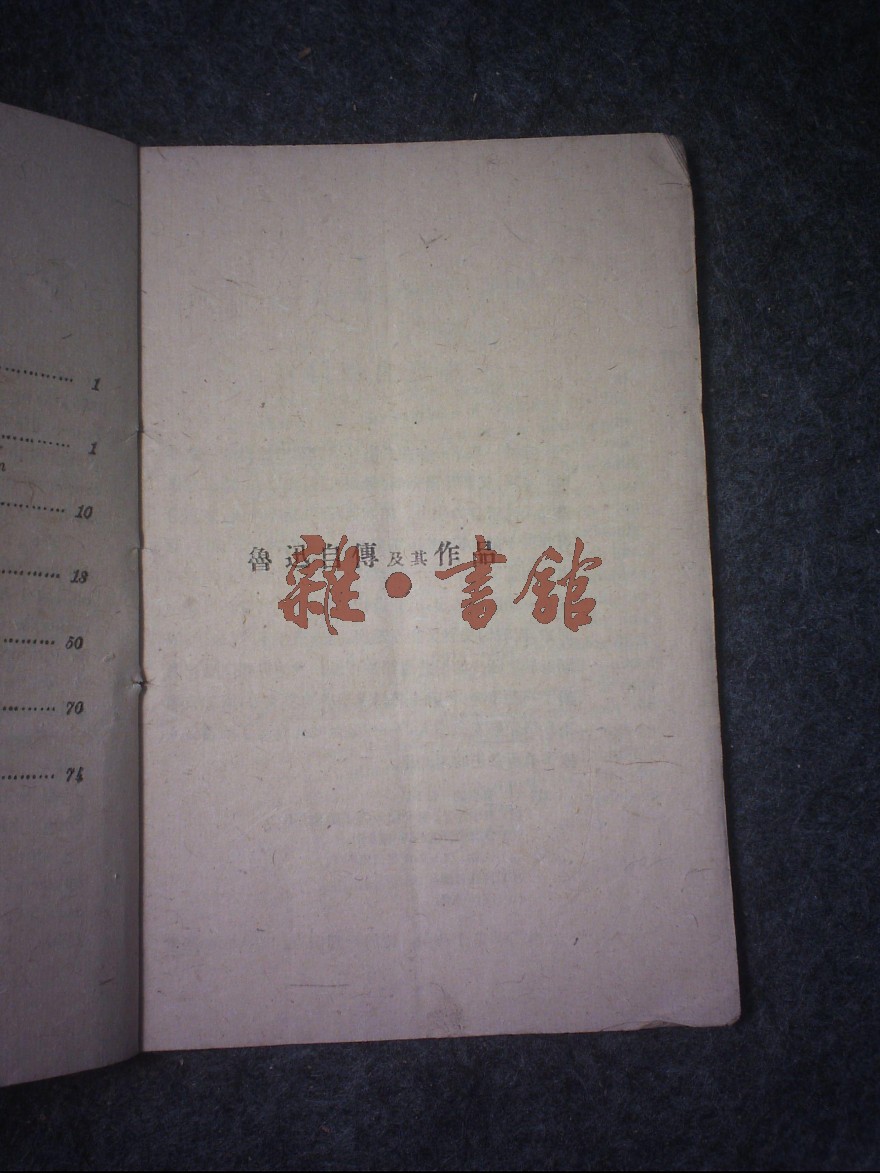 1
1
n
10
13
50
70
74
魯迅自傳及其作品
雜·書館